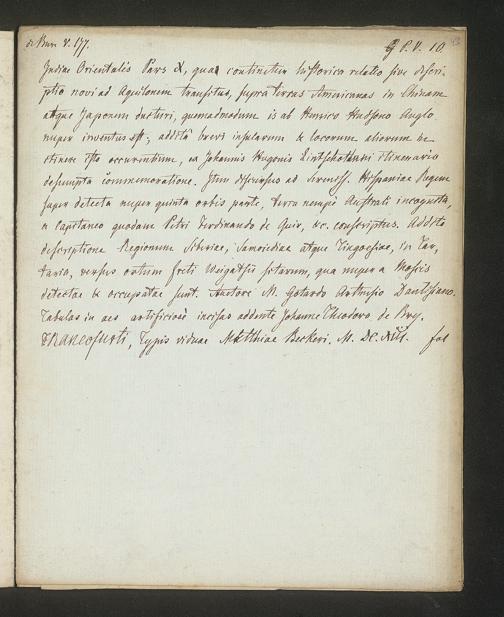 de Bure V. 177. G P. V. 10.
Indiae Orientalis Pars X, qua continetur historica relatio sive descri-
ptio novi ad Aquilonem transitus, supra terras Americanas in Chinam
atque Iaponem ducturi, quemadmodum is ab Henrico Hudsono Anglo
nuper inventus est; addita brevi insularum & locorum aliorum in
itinere isto occurrentium, ex Johannis Hugonis Lintschotani itinerario
desumpta commemoratione. Item discursus ad Sereniss. Hispaniae Regem
super detecta nuper quinta orbis parte, terra nempe Australi incognita,
a Capitaneo quodam Petri Ferdinando de Quir, &c. conscriptus. Addita
descriptione Regionum Siberiae, Samoiediae atque Tingoesiae, in Tar-
taria, versus ortum freti Weigatsii sitarum, qua nuper a Moscis
detectae & occupatae sunt. Auctore M. Gotardo Arthusio Dantiscano.
Tabulas in aes artificiose incisas addente Johanne Theodoro de Bry.
Francofurti, Typis viduae Matthiae Beckeri. M. DC. XIII. fol